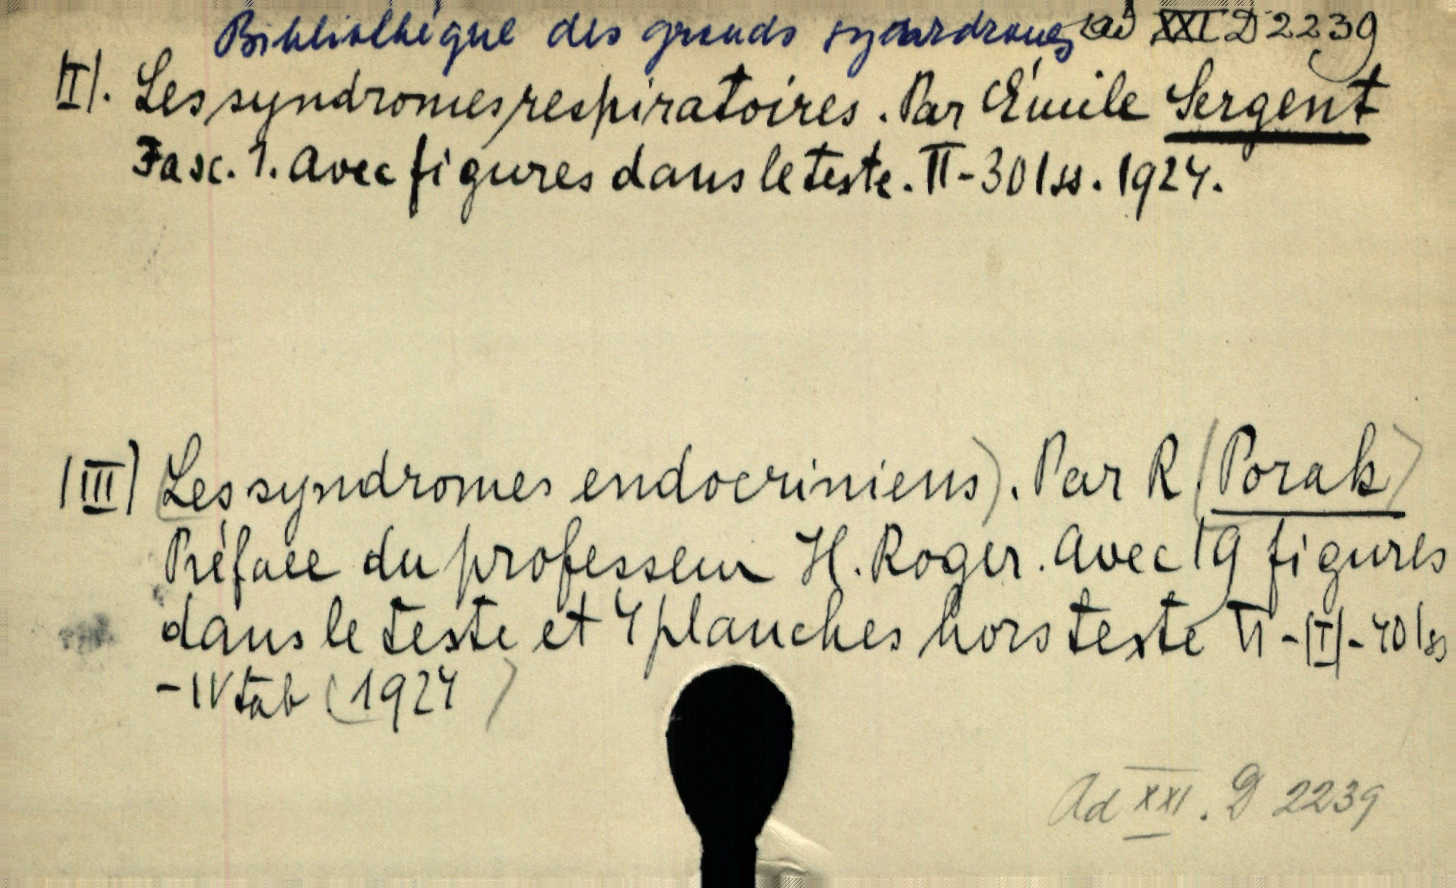 Bibliothèque des grands syndromes ad XXI D 2239
II). Les syndromes respiratoires. Par Émile Sergent
Fasc. 1. Avec figures dans le texte. II - 301 ss. 1924.
(III) (Les syndromes endocriniens). Par R. (Porak)
Préface du professeur H. Roger. Avec 19 figures
dans le texte et 4 planches hors texte VI - (I) - 401 ss
- IV tab (1924)
Ad XXI. D 2239